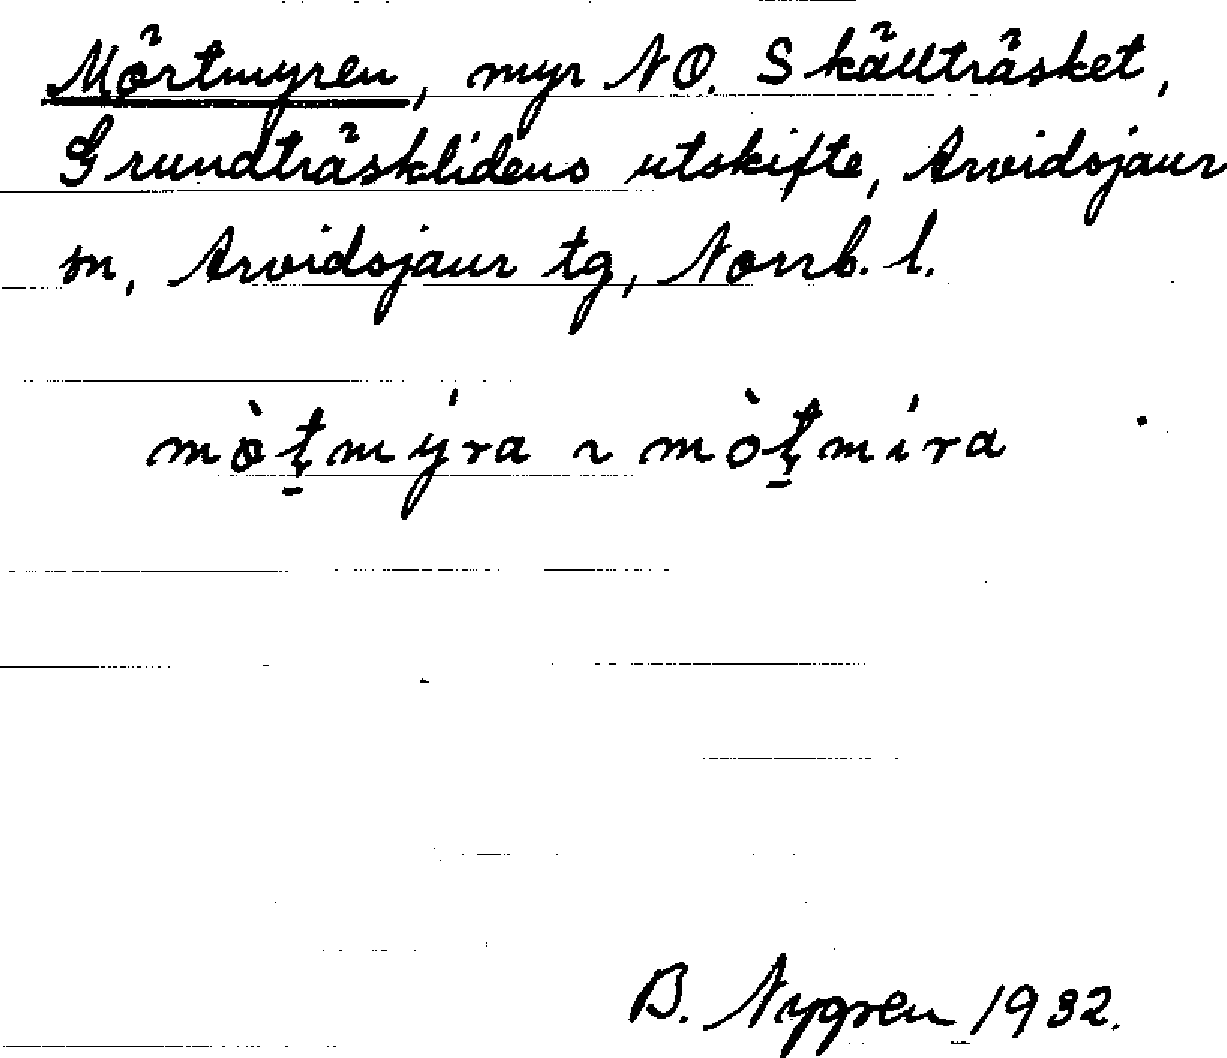 Mörtmyren, myr NO. Skällträsket,
Grundträsklidens utskifte, Arvidsjaur
sn, Arvidsjaur tg, Norrb. l.
mò̱ţmýra ~ mò̱ţmíra
B. Nygren 1932.